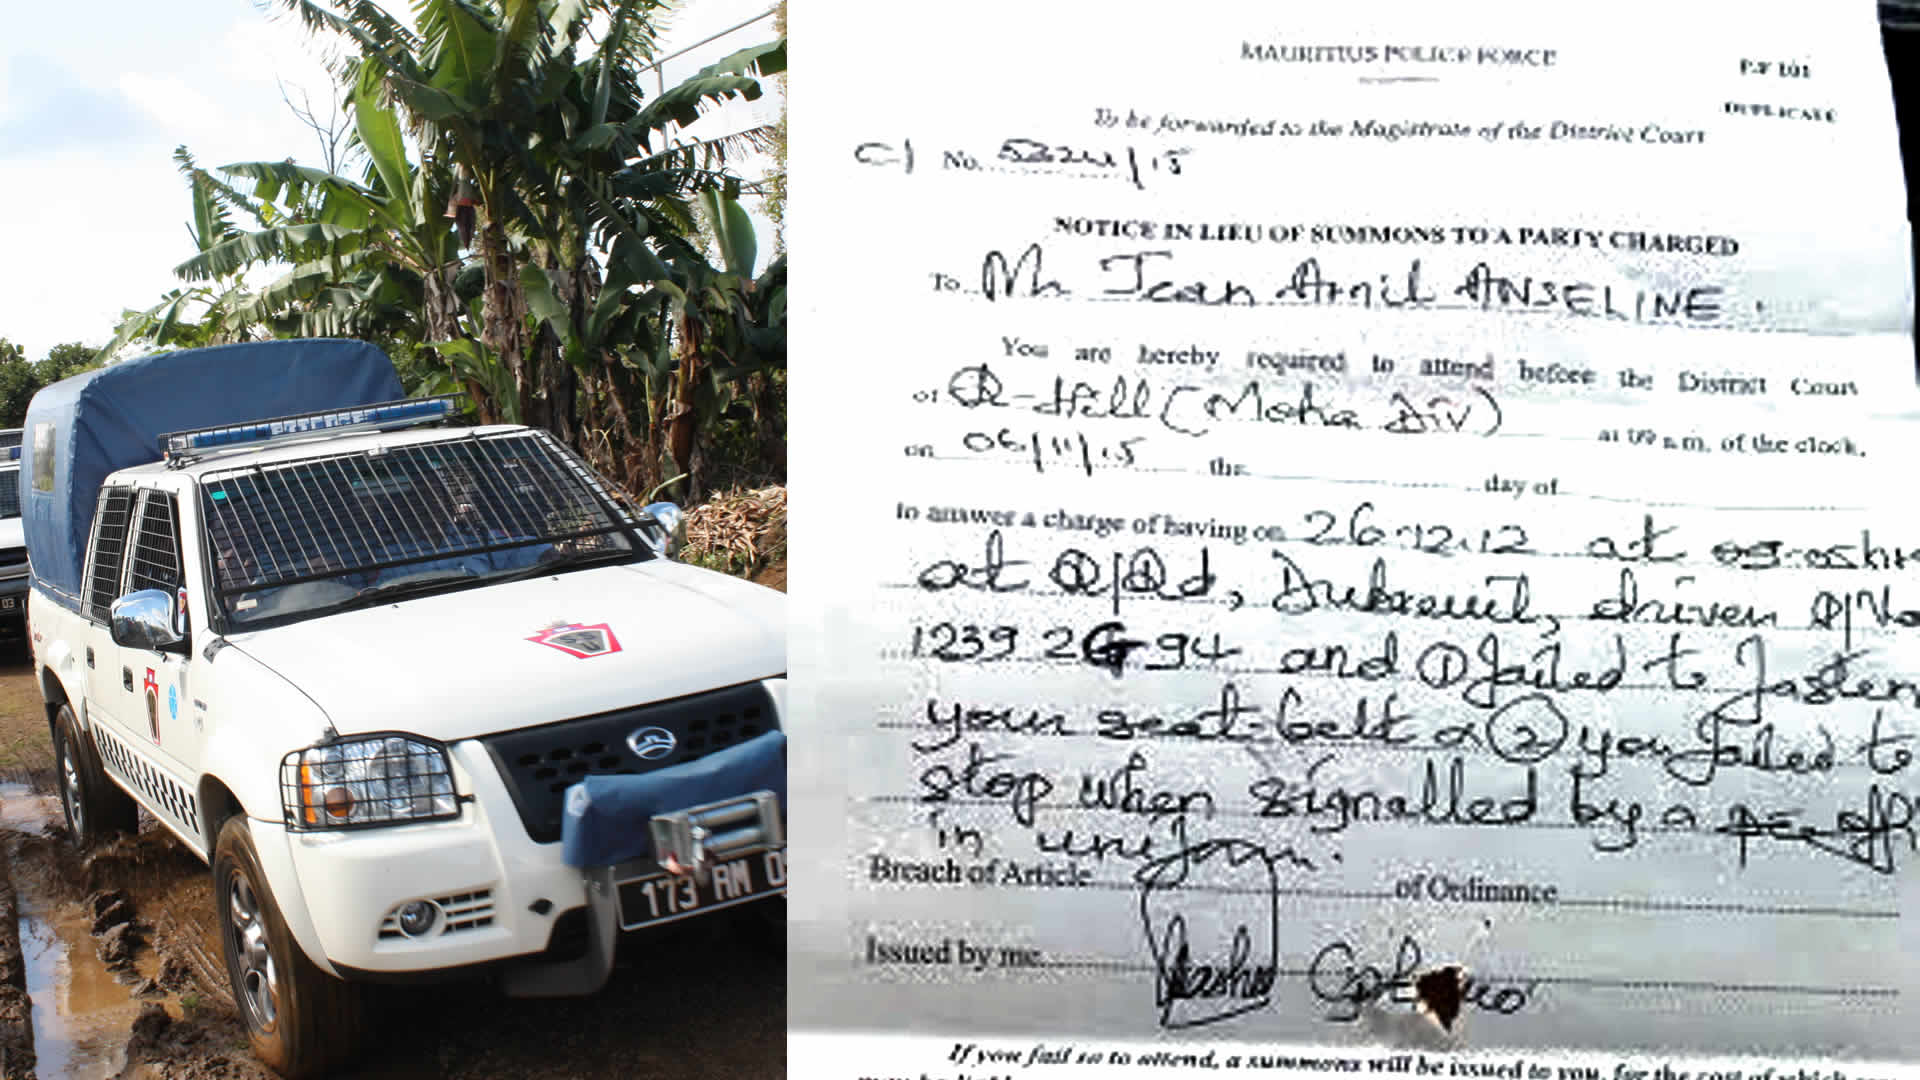 POLICE
173 RM 0
03
MAURITIUS POLICE FORCE
P.F 101
DUPLICATE
To be forwarded to the Magistrate of the District Court
No. /15
NOTICE IN LIEU OF SUMMONS TO A PARTY CHARGED
To Mr Jean ANSELINE
You are hereby required to attend before the District Court
of R-Hill (Moka Div) at 09 a.m. of the clock,
on 06/11/15 the day of
to answer a charge of having on 26.12.12 at
at Dubreuil, driven
1239 ZG 94 and ① failed to fasten
your seat-belt ② you failed to
stop when signalled by a
in uniform.
Breach of Article of Ordinance
Issued by me
If you fail so to attend, a summons will be issued to you, for the cost of which